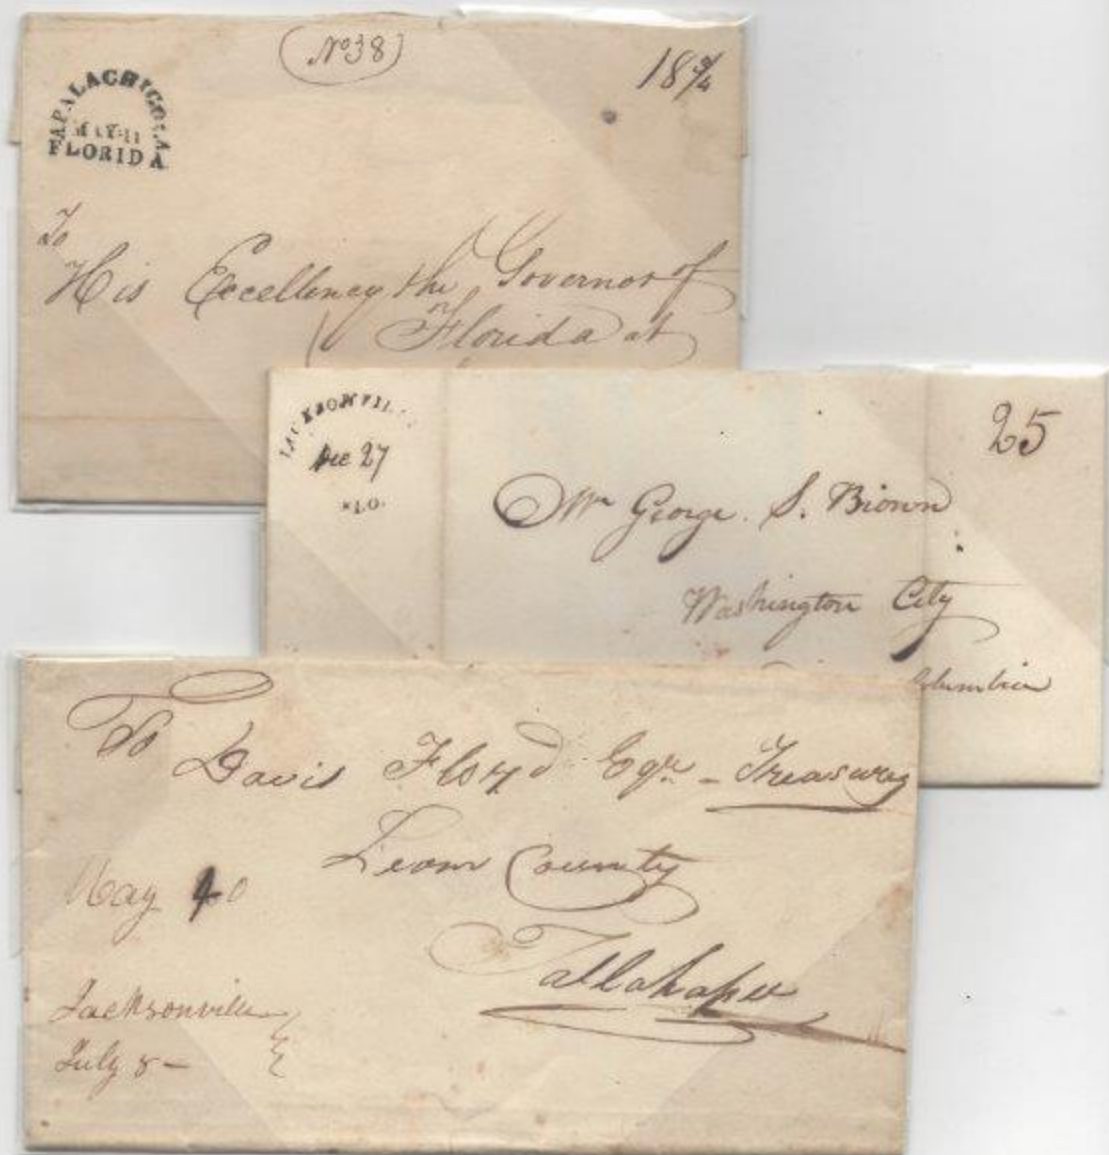 (No 38)
18 3/4
APALACHICOLA
MAY 11
FLORIDA
To
His Excellency the Governor of
Florida at
JACKSONVIL
Dec 27
FLO.
25
Mr George. S. Brown
Washington City
Columbia
To Davis Floyd Esqr - Treasurer
Leon County
May
Tallahassee
Jacksonville
July 8 -